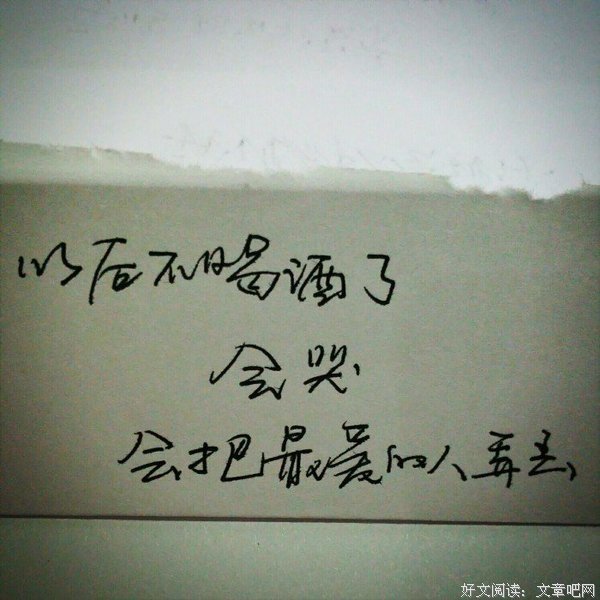 以后不喝酒了
会哭
会把最爱的人弄丢
好文阅读：文章吧网